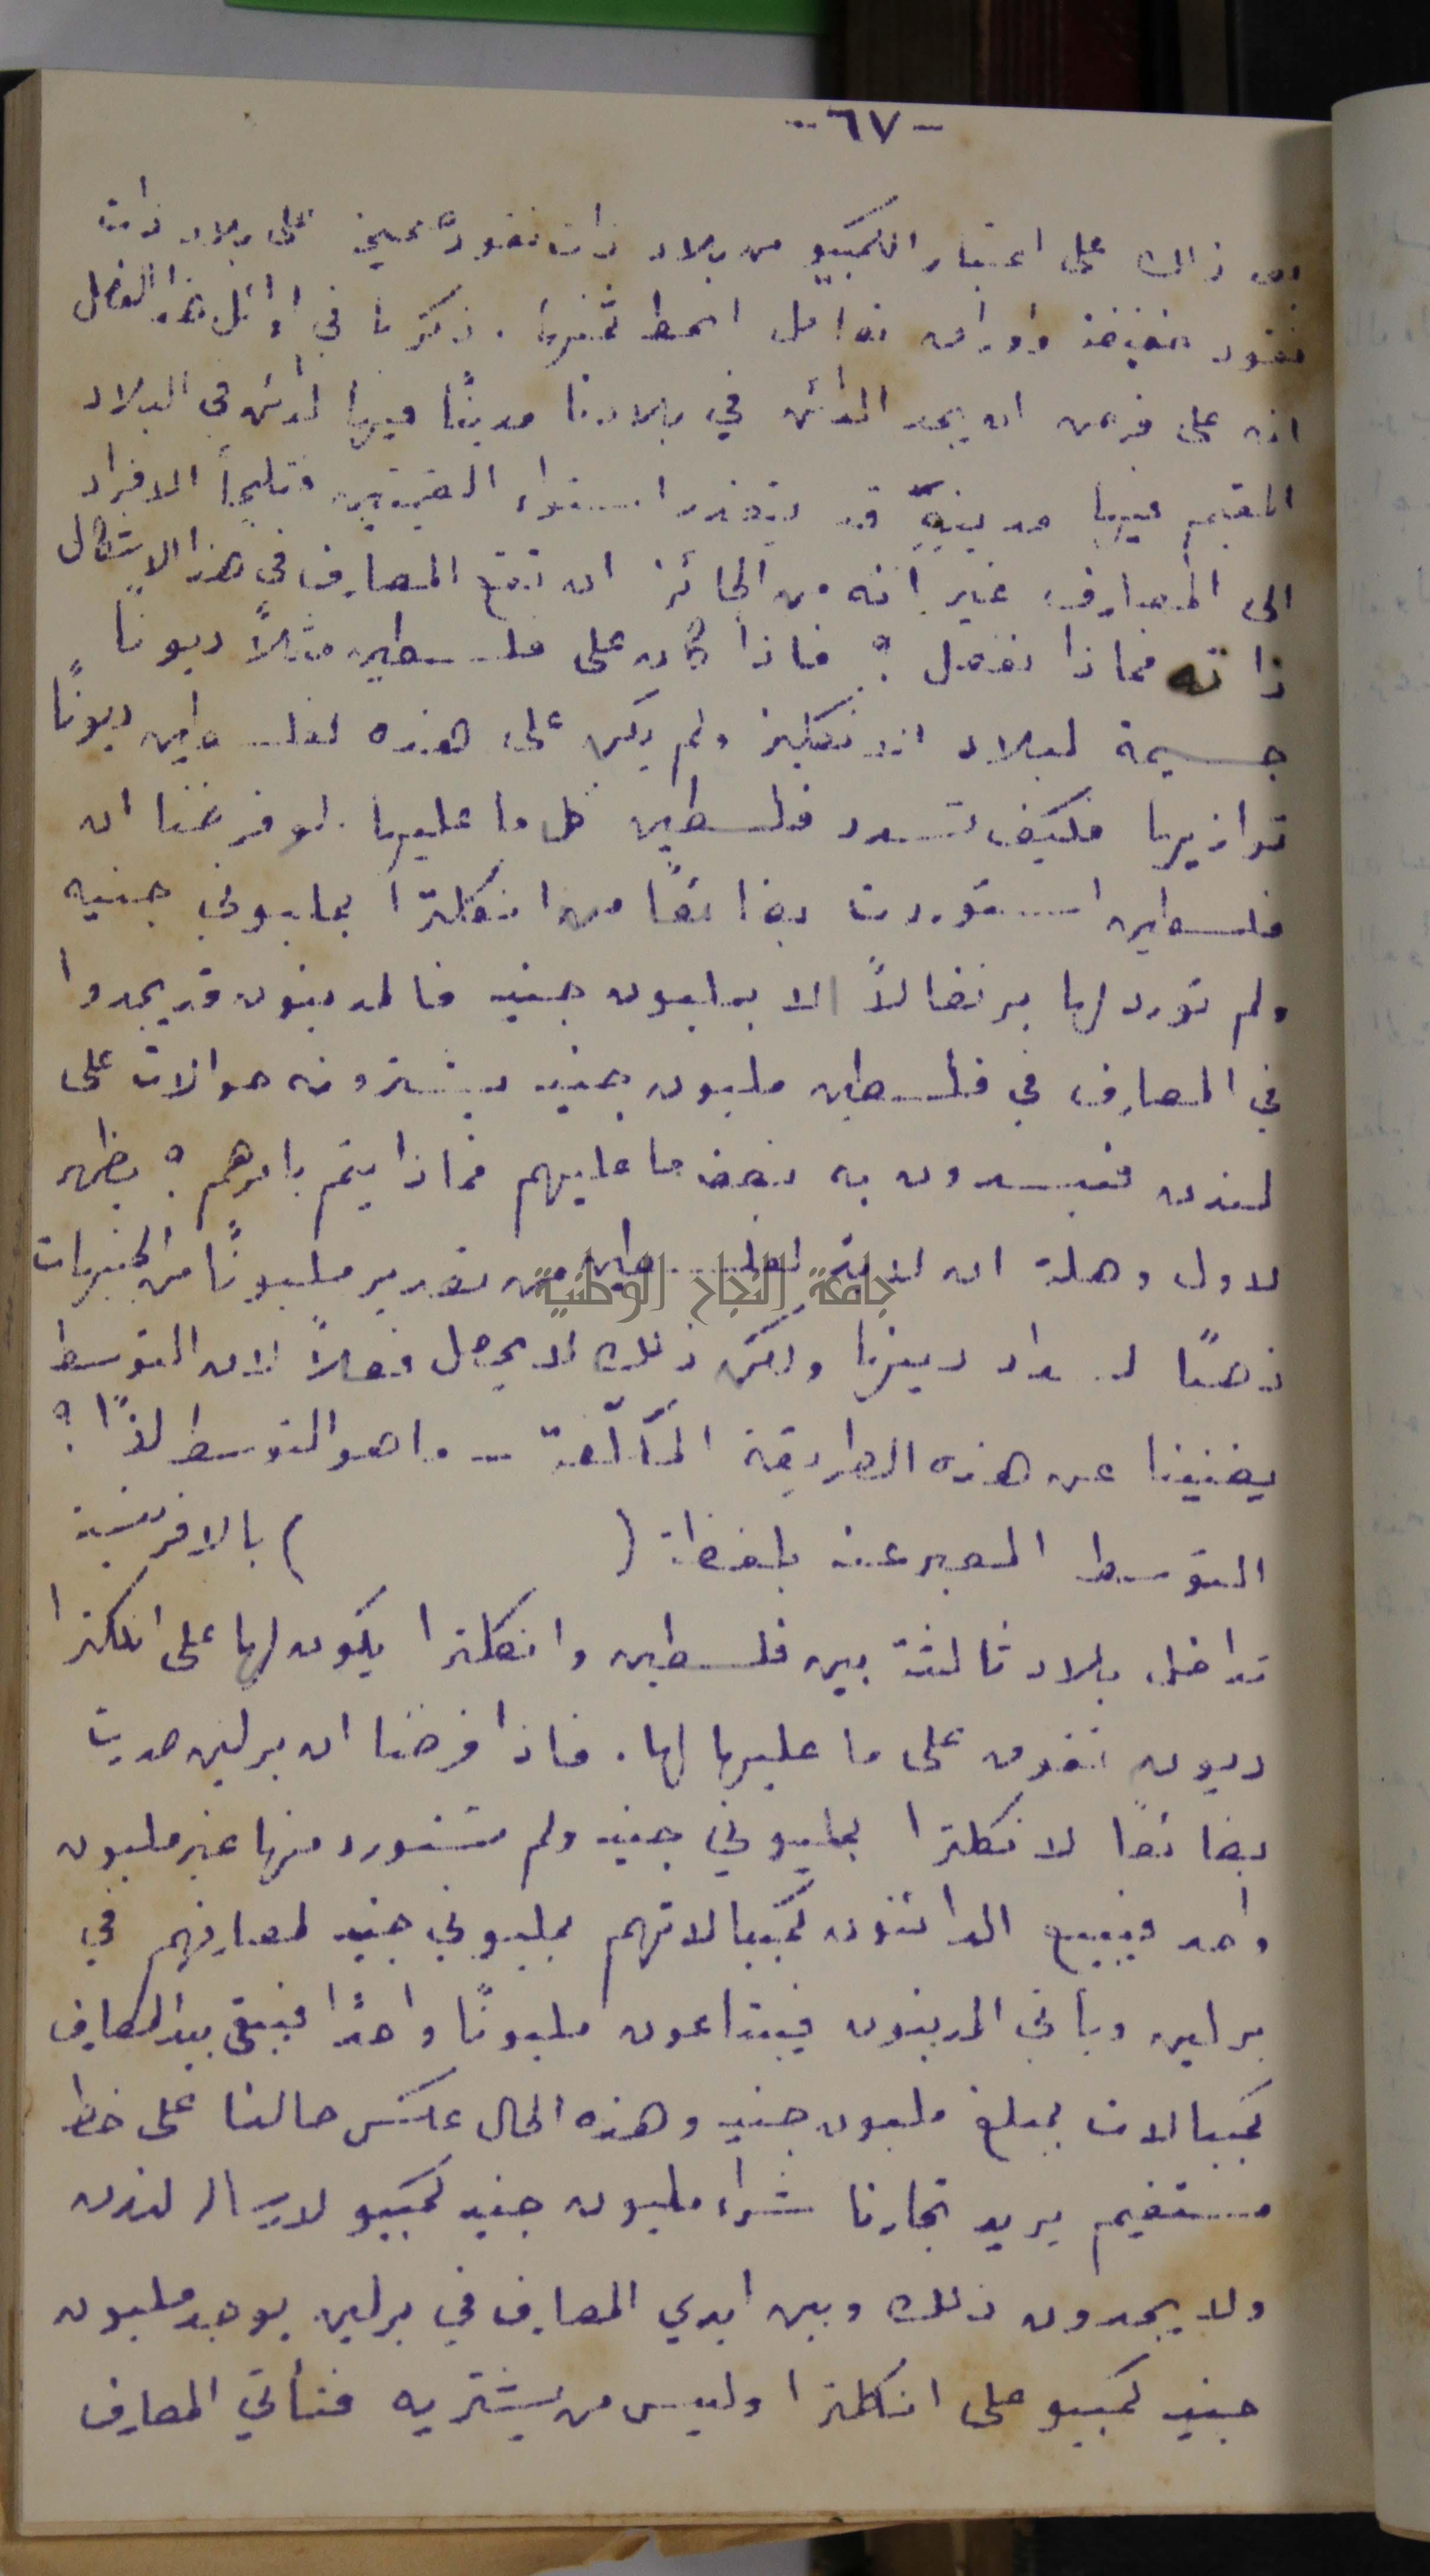 -٦٧-
ذلك على اعتبار الكمبيو من بلاد ذات نقود صحيحة على بلاد ذات
نقود ضعيفة واوراق تداول انحط ثمنها . ذكرنا في اوائل هذا الفصل
انه على فرض ان يجد الدائن في بلادنا مدينًا فيها لدائن في البلاد
المقيم فيها مدينه قد يتعذر استواء القيمتين فتلجأ الافراد
الى المصارف غير انه من الجائز ان تقع المصارف في هذا الاشكال
ذاته فماذا تفعل ؟ فاذا كان على فلسطين مثلاً ديونًا
جسيمة لبلاد الانكليز ولم يكن على هذه لفلسطين ديونًا
توازيها فكيف تسدد فلسطين كل ما عليها . لو فرضنا ان
فلسطين استوردت بضائعًا من انكلترا بمليوني جنيه
ولم تورد لها برتقالاً الا بمليون جنيه فالمدينون قد يجدوا
في المصارف في فلسطين مليون جنيه يشترونه حوالات على
لندن فيسددون به بعض ما عليهم فماذا يتم بامرهم ؟ يظهر
لاول وهلة ان لا بد لفلسطين من تصدير مليونًا من الجنيهات
ذهبًا لسداد دينها ولكن ذلك لا يحصل فعلاً لان التوسط
يغنينا عن هذه الطريقة المكلّفة - ما هو التوسط اذًا ؟
التوسط المعبر عنه بلفظة ( ) بالافرنسية
تداخل بلاد ثالثة بين فلسطين وانكلترا يكون لها على انكلترا
ديون تفوق على ما عليها لها . فاذا فرضنا ان برلين صدرت
بضائعًا لانكلترا بمليوني جنيه ولم تستورد منها غير مليون
واحد فيبيع الدائنون كمبيالاتهم بمليوني جنيه لمصارفهم في
برلين ويأتي المدينون فيبتاعون مليونًا واحدًا فيبقى بيد المصارف
كمبيالات بمبلغ مليون جنيه وهذه الحال عكس حالنا على خط
مستقيم يريد تجارنا شراء مليون جنيه كمبيو لارسال لندن
ولا يجدون ذلك وبين ايدي المصارف في برلين يوجد مليون
جنيه كمبيو على انكلترا وليس من يشتريه فتأتي المصارف
جامعة النجاح الوطنية